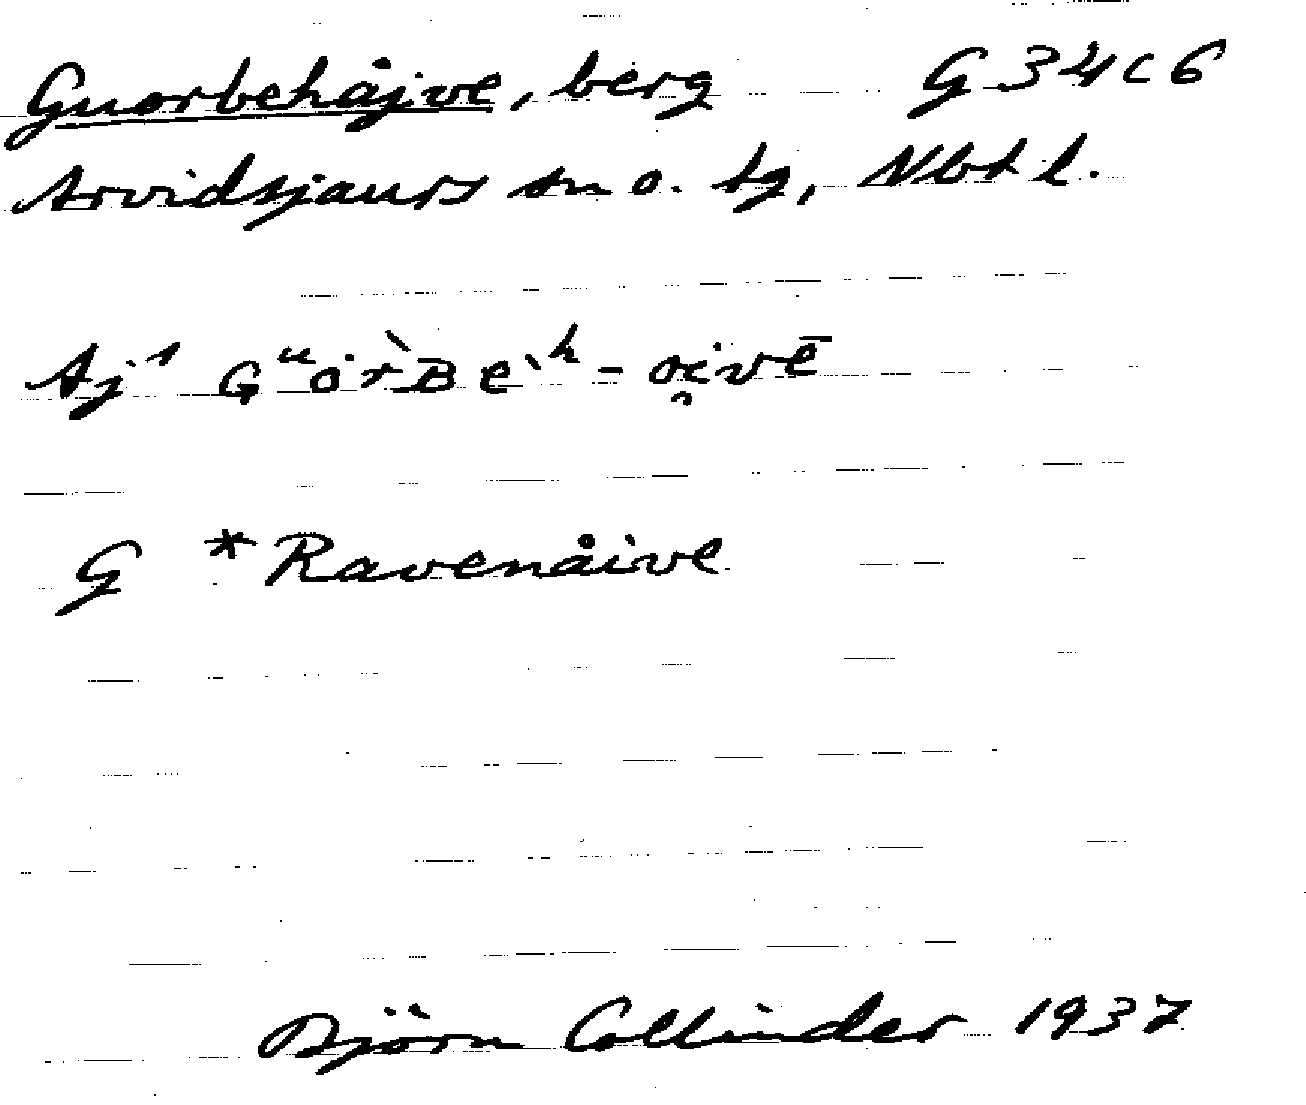 Guorbehåjve, berg G 34 c 6
Arvidsjaurs sn o. tg, Nbt l.
Aj¹ Gᵘȯr̀ʙeˋʰ-o̯i̯vē
G *Ravenåive
Björn Collinder 1937